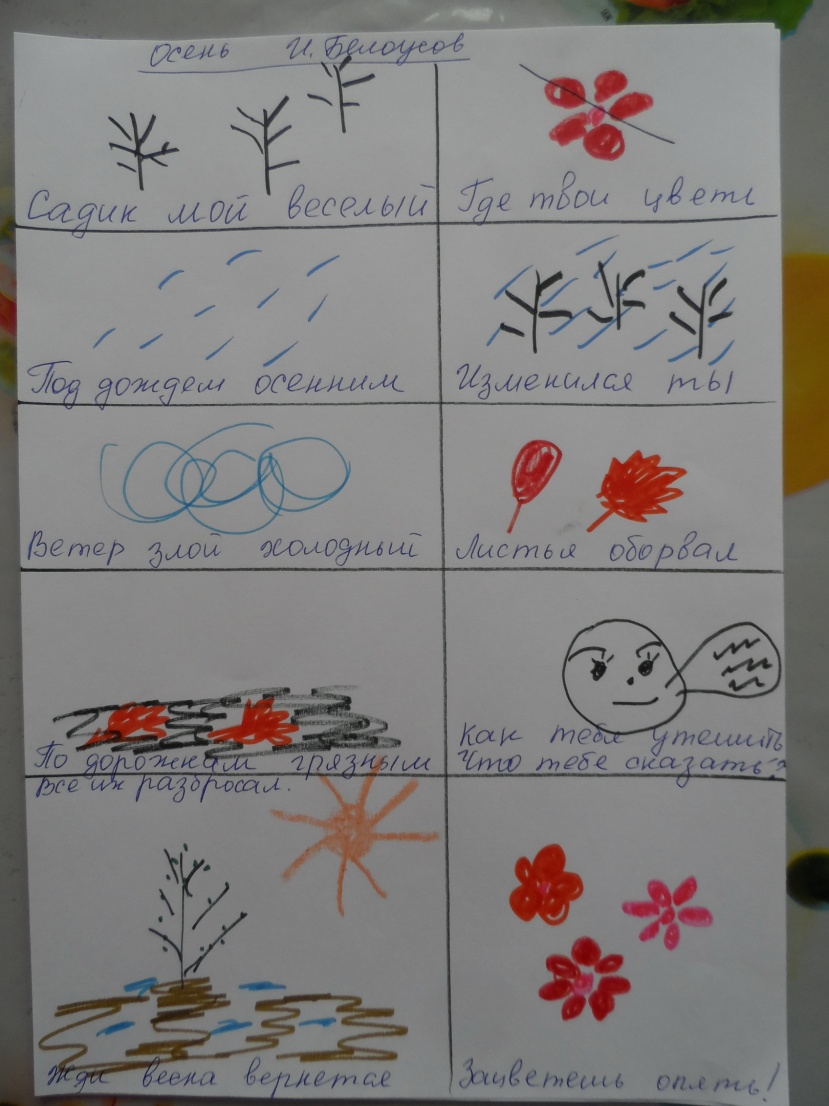 Осень И. Белоусов
Садик мой веселый
Где твои цветы
Под дождем осенним
Изменился ты
Ветер злой холодный
Листья оборвал
По дорожкам грязным
Все их разбросал.
Как тебя утешить
Что тебе сказать?
Жди весна вернется
Зацветешь опять!